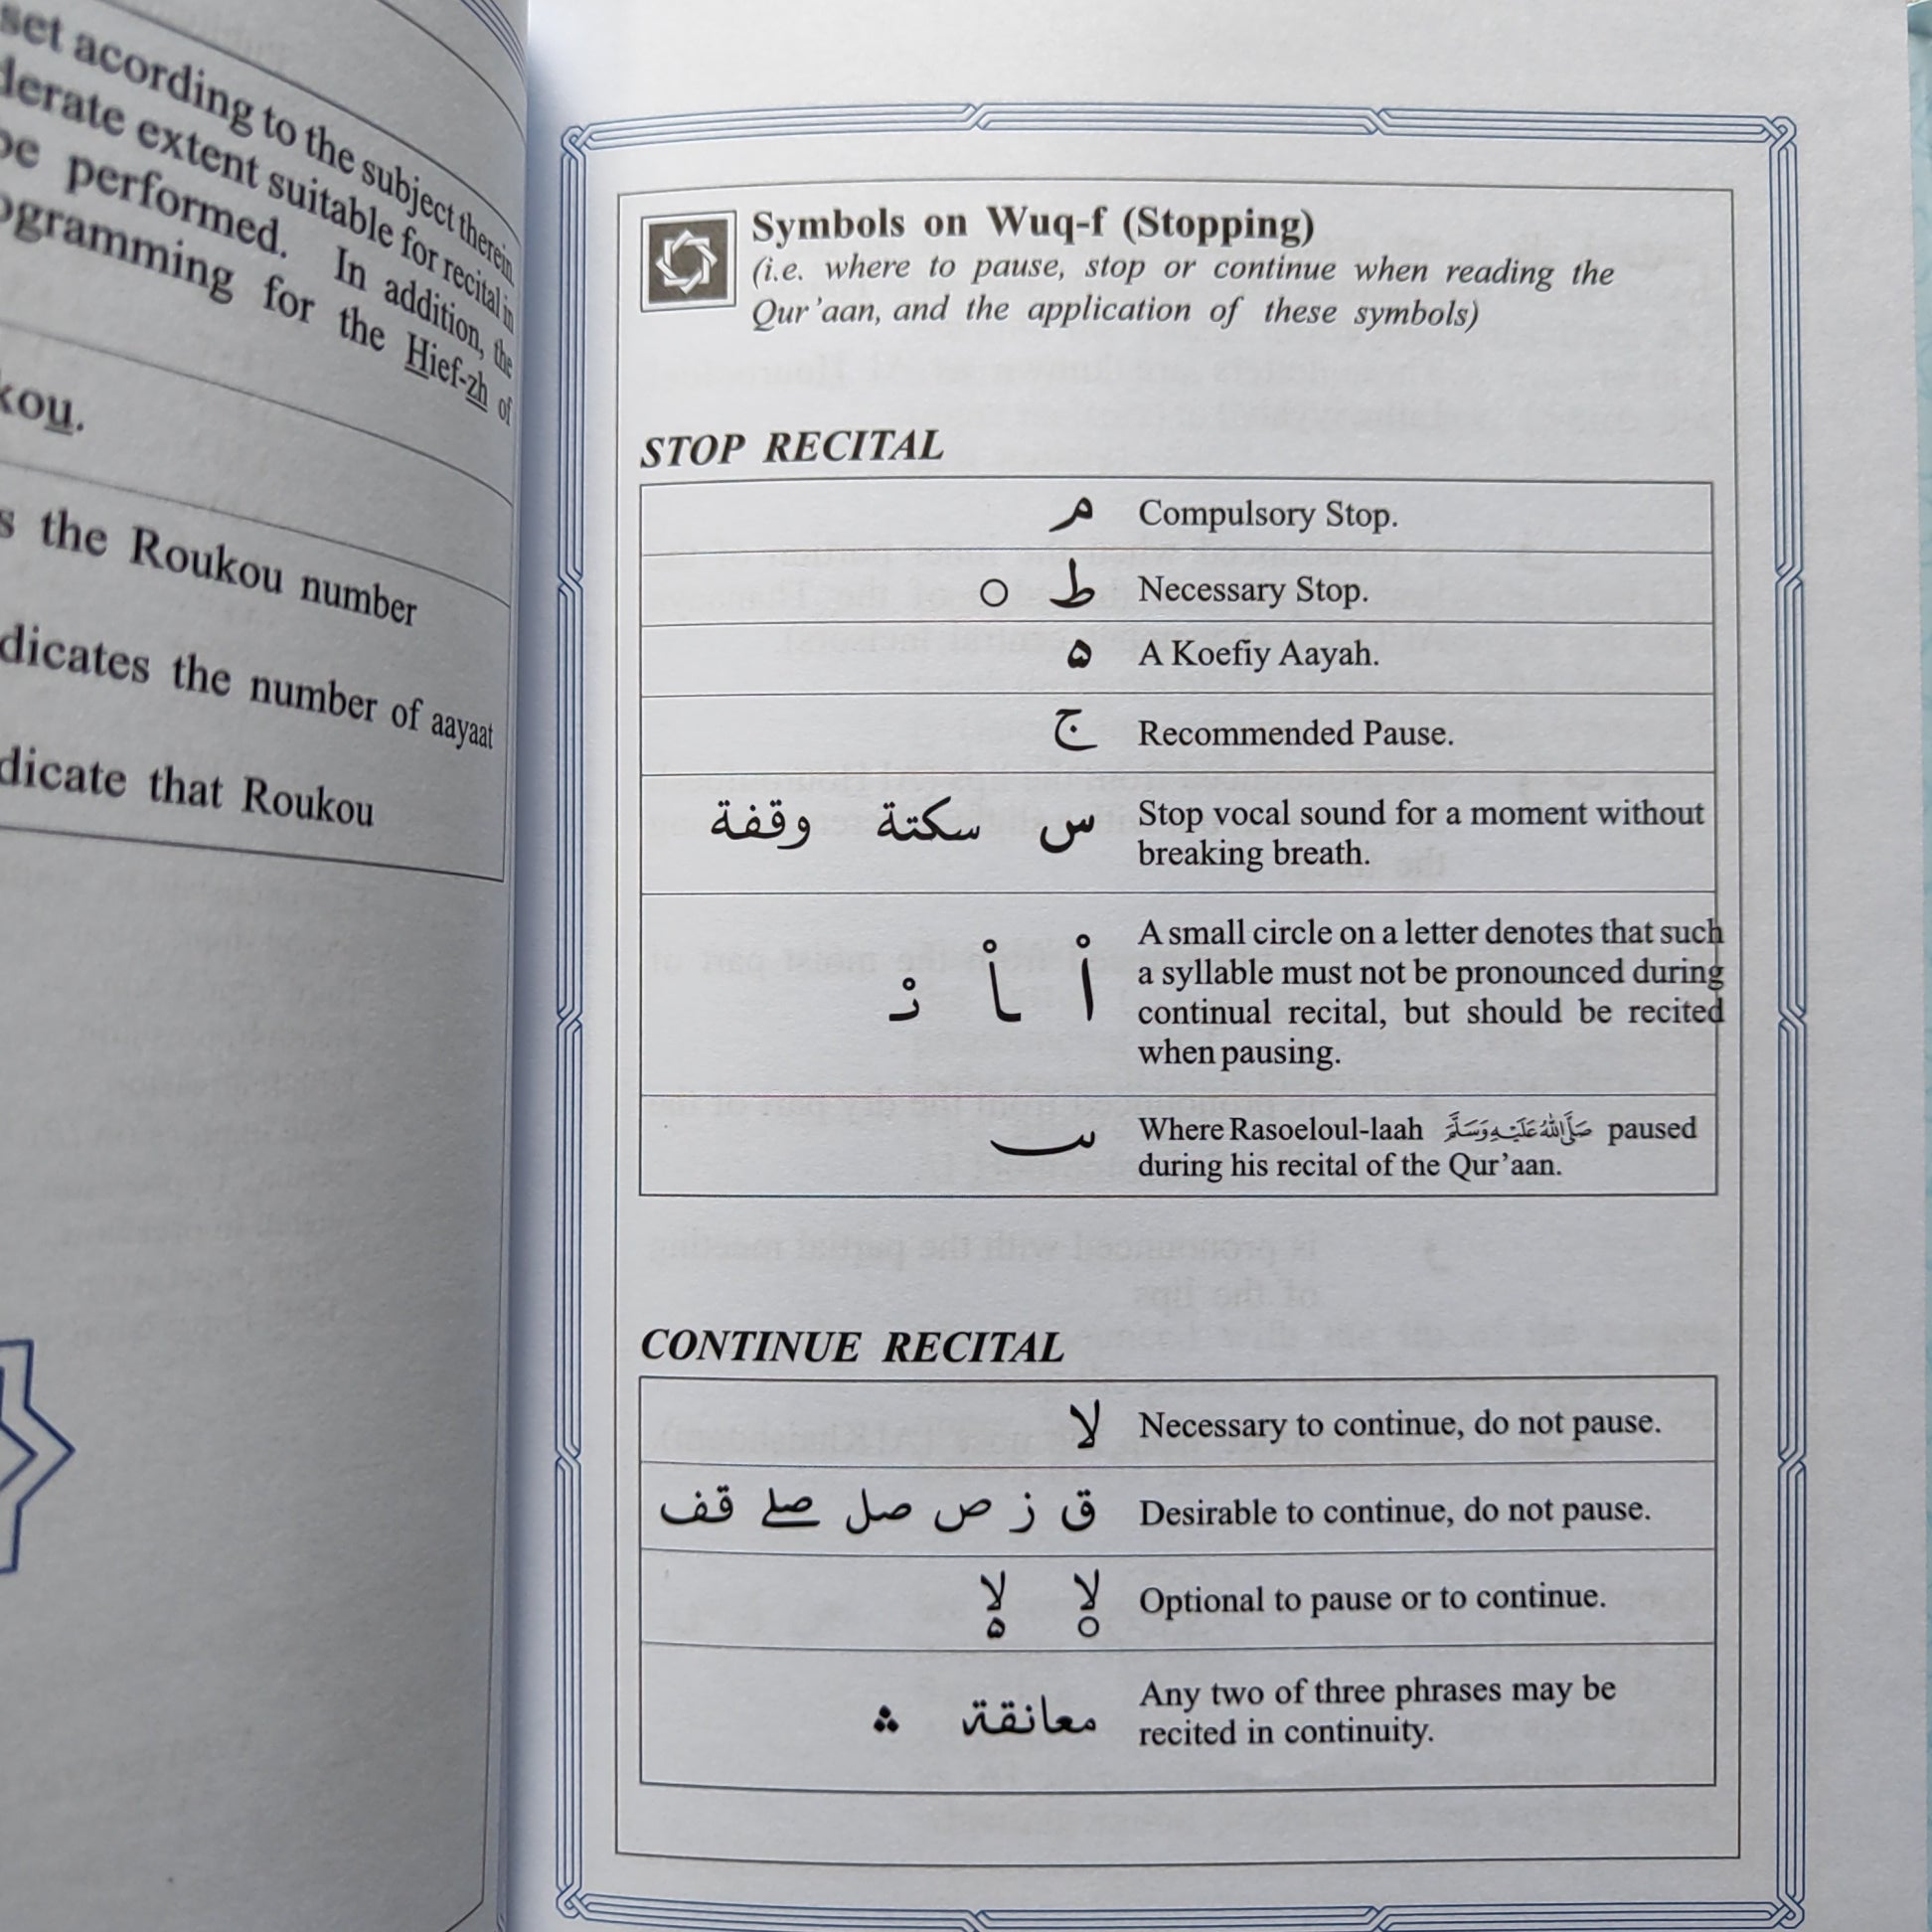 set acording to the subject therein
derate extent suitable for recital in
be performed. In addition, the
ogramming for the Hief-zh of
kou.
s the Roukou number
dicates the number of aayaat
dicate that Roukou
Symbols on Wuq-f (Stopping)
(i.e. where to pause, stop or continue when reading the
Qur’aan, and the application of these symbols)
STOP RECITAL
م Compulsory Stop.
ط ○ Necessary Stop.
۵ A Koefiy Aayah.
ج Recommended Pause.
س سكتة وقفة Stop vocal sound for a moment without
breaking breath.
A small circle on a letter denotes that such
a syllable must not be pronounced during
continual recital, but should be recited
when pausing.
Where Rasoeloul-laah ﷺ paused
during his recital of the Qur’aan.
CONTINUE RECITAL
لا Necessary to continue, do not pause.
ق ز ص صل صلے قف Desirable to continue, do not pause.
لا ○ لا ۵ Optional to pause or to continue.
معانقة ∴ Any two of three phrases may be
recited in continuity.